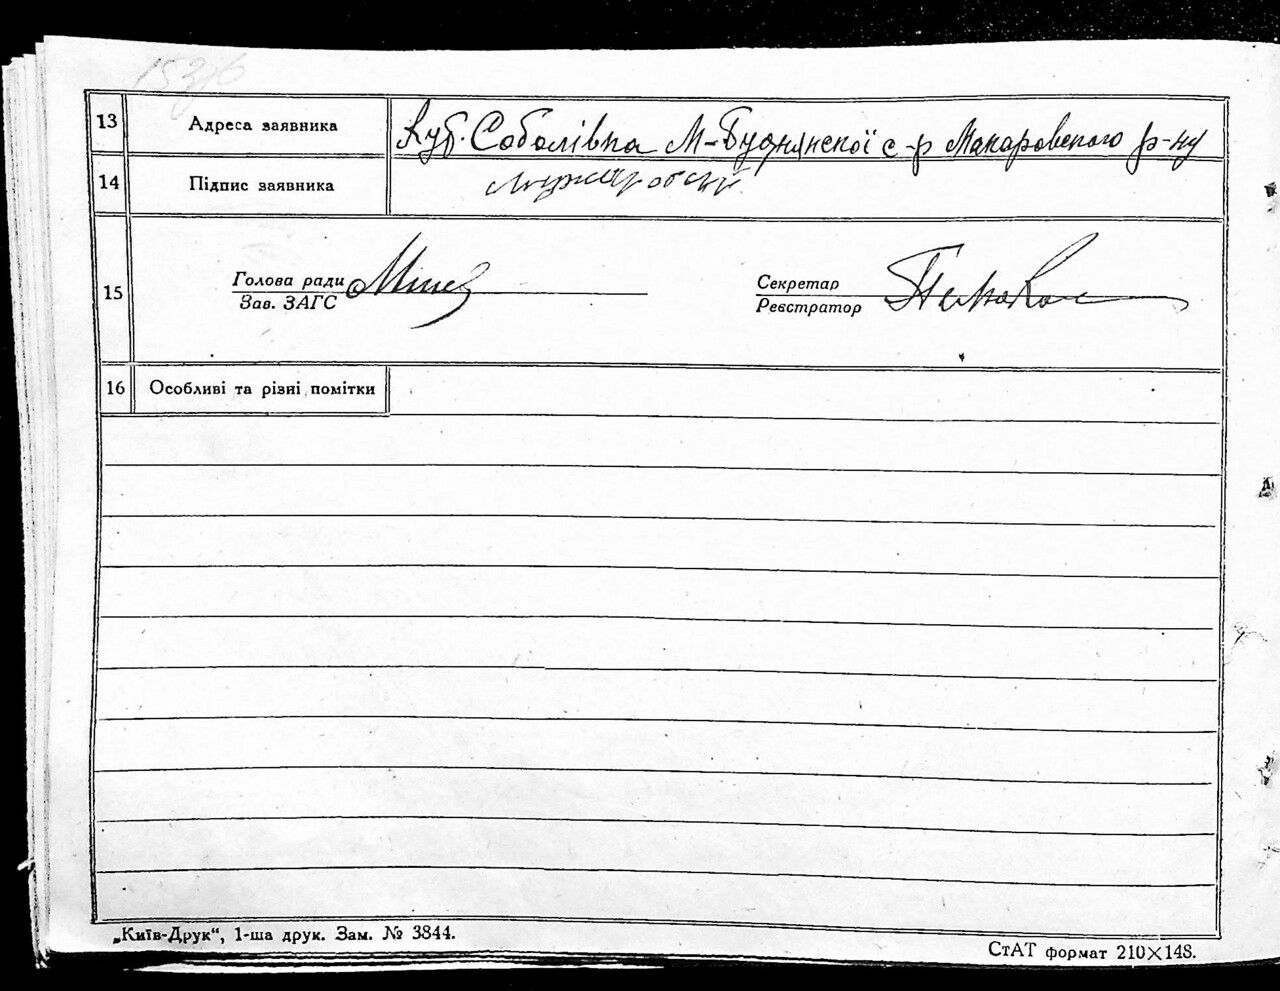 13 Адреса заявника Хут. Соболівка М-Буднянскої с-р Макаровского р-ну
14 Підпис заявника
15 Голова ради Секретар
Зав. ЗАГС Реєстратор
16 Особливі та різні помітки
„Київ-Друк“, 1-ша друк. Зам. № 3844.
СтАТ формат 210×148.